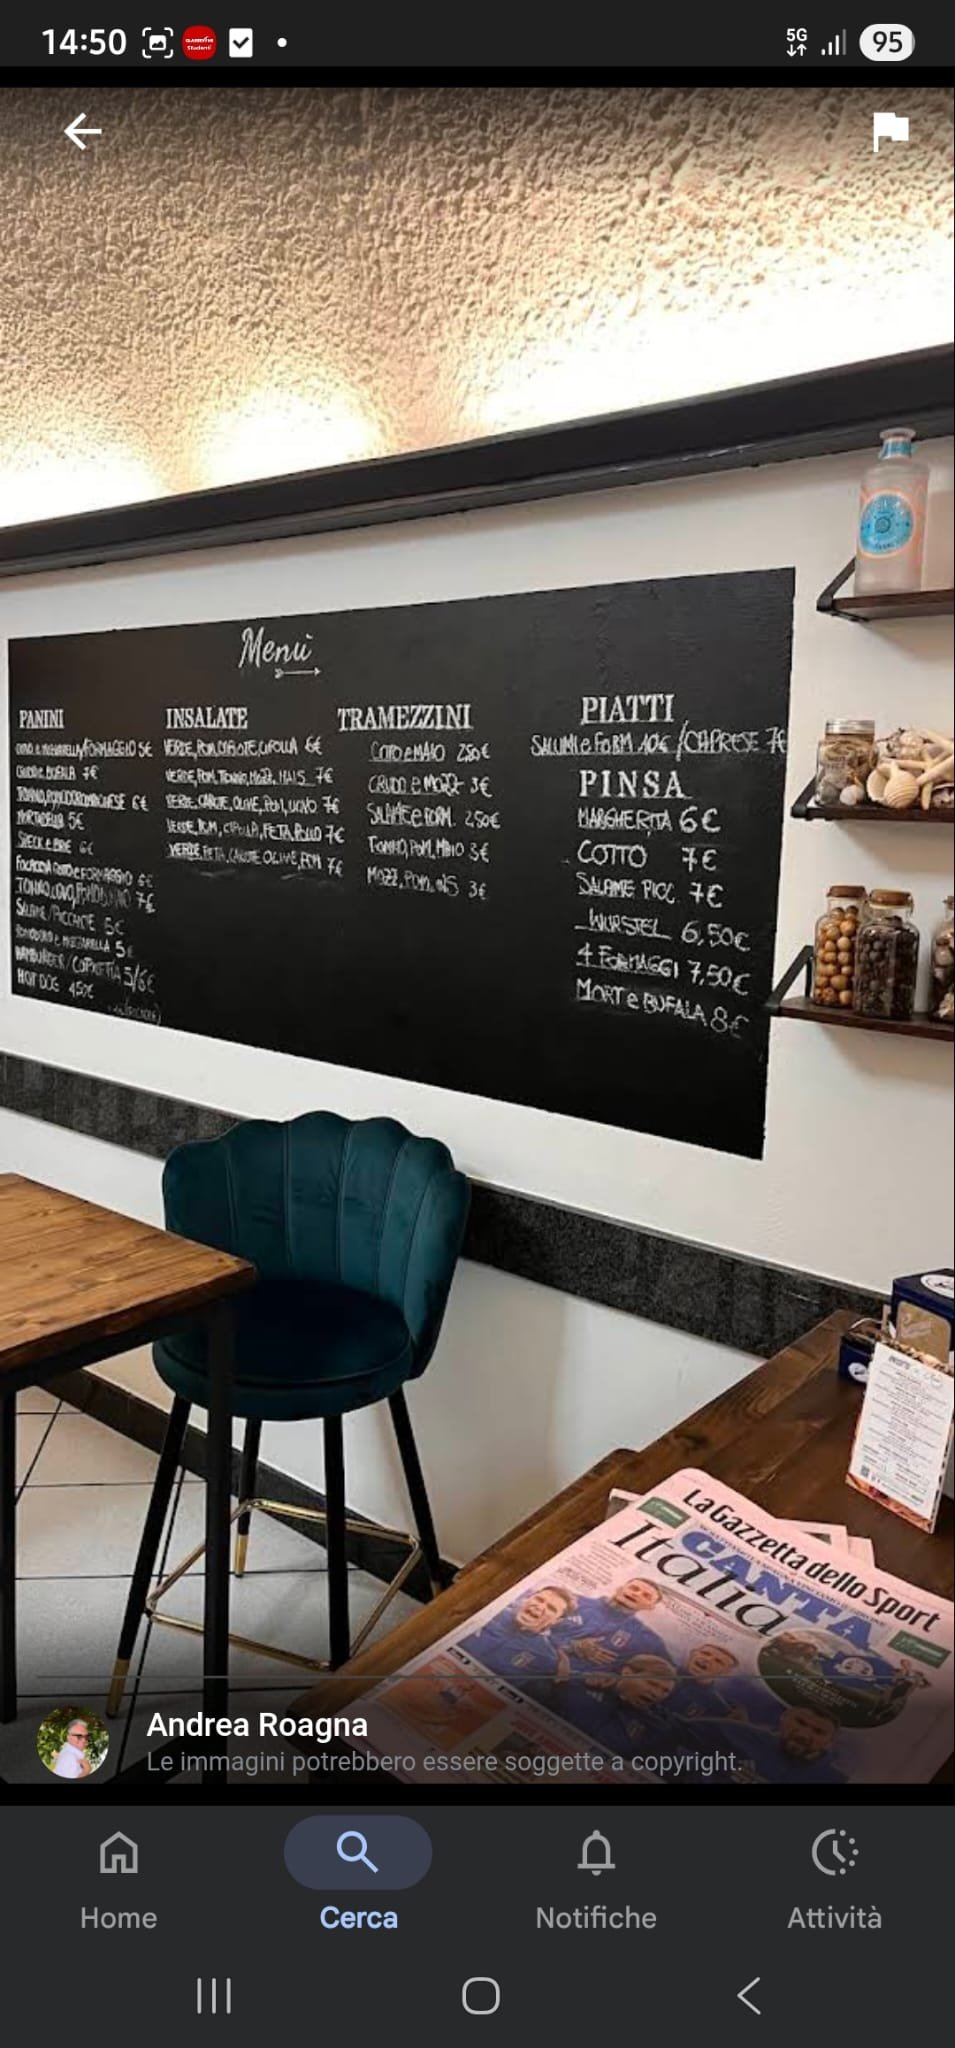 14:50
5G
95
Menù
PANINI
FORMAGGIO 5€
CRUDO e BUFALA 7€
6€
MORTADELLA 5€
SPECK e BRIE 6€
FOCACCIA COTTO e FORMAGGIO 6€
TONNO, UOVO, 7€
SALAME/PICCANTE 6€
POMODORO e MOZZARELLA 5€
HAMBURGER/COTOLETTA 5/6€
HOT DOG 4,50€
INSALATE
VERDE, POM, CAROTE, CIPOLLA 6€
VERDE, POM, TONNO, MOZZ, MAIS 7€
VERDE, CAROTE, OLIVE, POM, UOVO 7€
VERDE, POM, CIPOLLA, FETA, POLLO 7€
VERDE, FETA, CAROTE, OLIVE, POM 7€
TRAMEZZINI
COTTO e MAIO 2,50€
CRUDO e MOZZ 3€
SALAME e FORM. 2,50€
TONNO, POM, MAIO 3€
MOZZ, POM, INS 3€
PIATTI
SALUMI e FORM 10€ / CAPRESE 7€
PINSA
MARGHERITA 6€
COTTO 7€
SALAME PICC. 7€
WURSTEL 6,50€
4 FORMAGGI 7,50€
MORT e BUFALA 8€
La Gazzetta dello Sport
CANTA
Italia
Andrea Roagna
Le immagini potrebbero essere soggette a copyright.
Home
Cerca
Notifiche
Attività